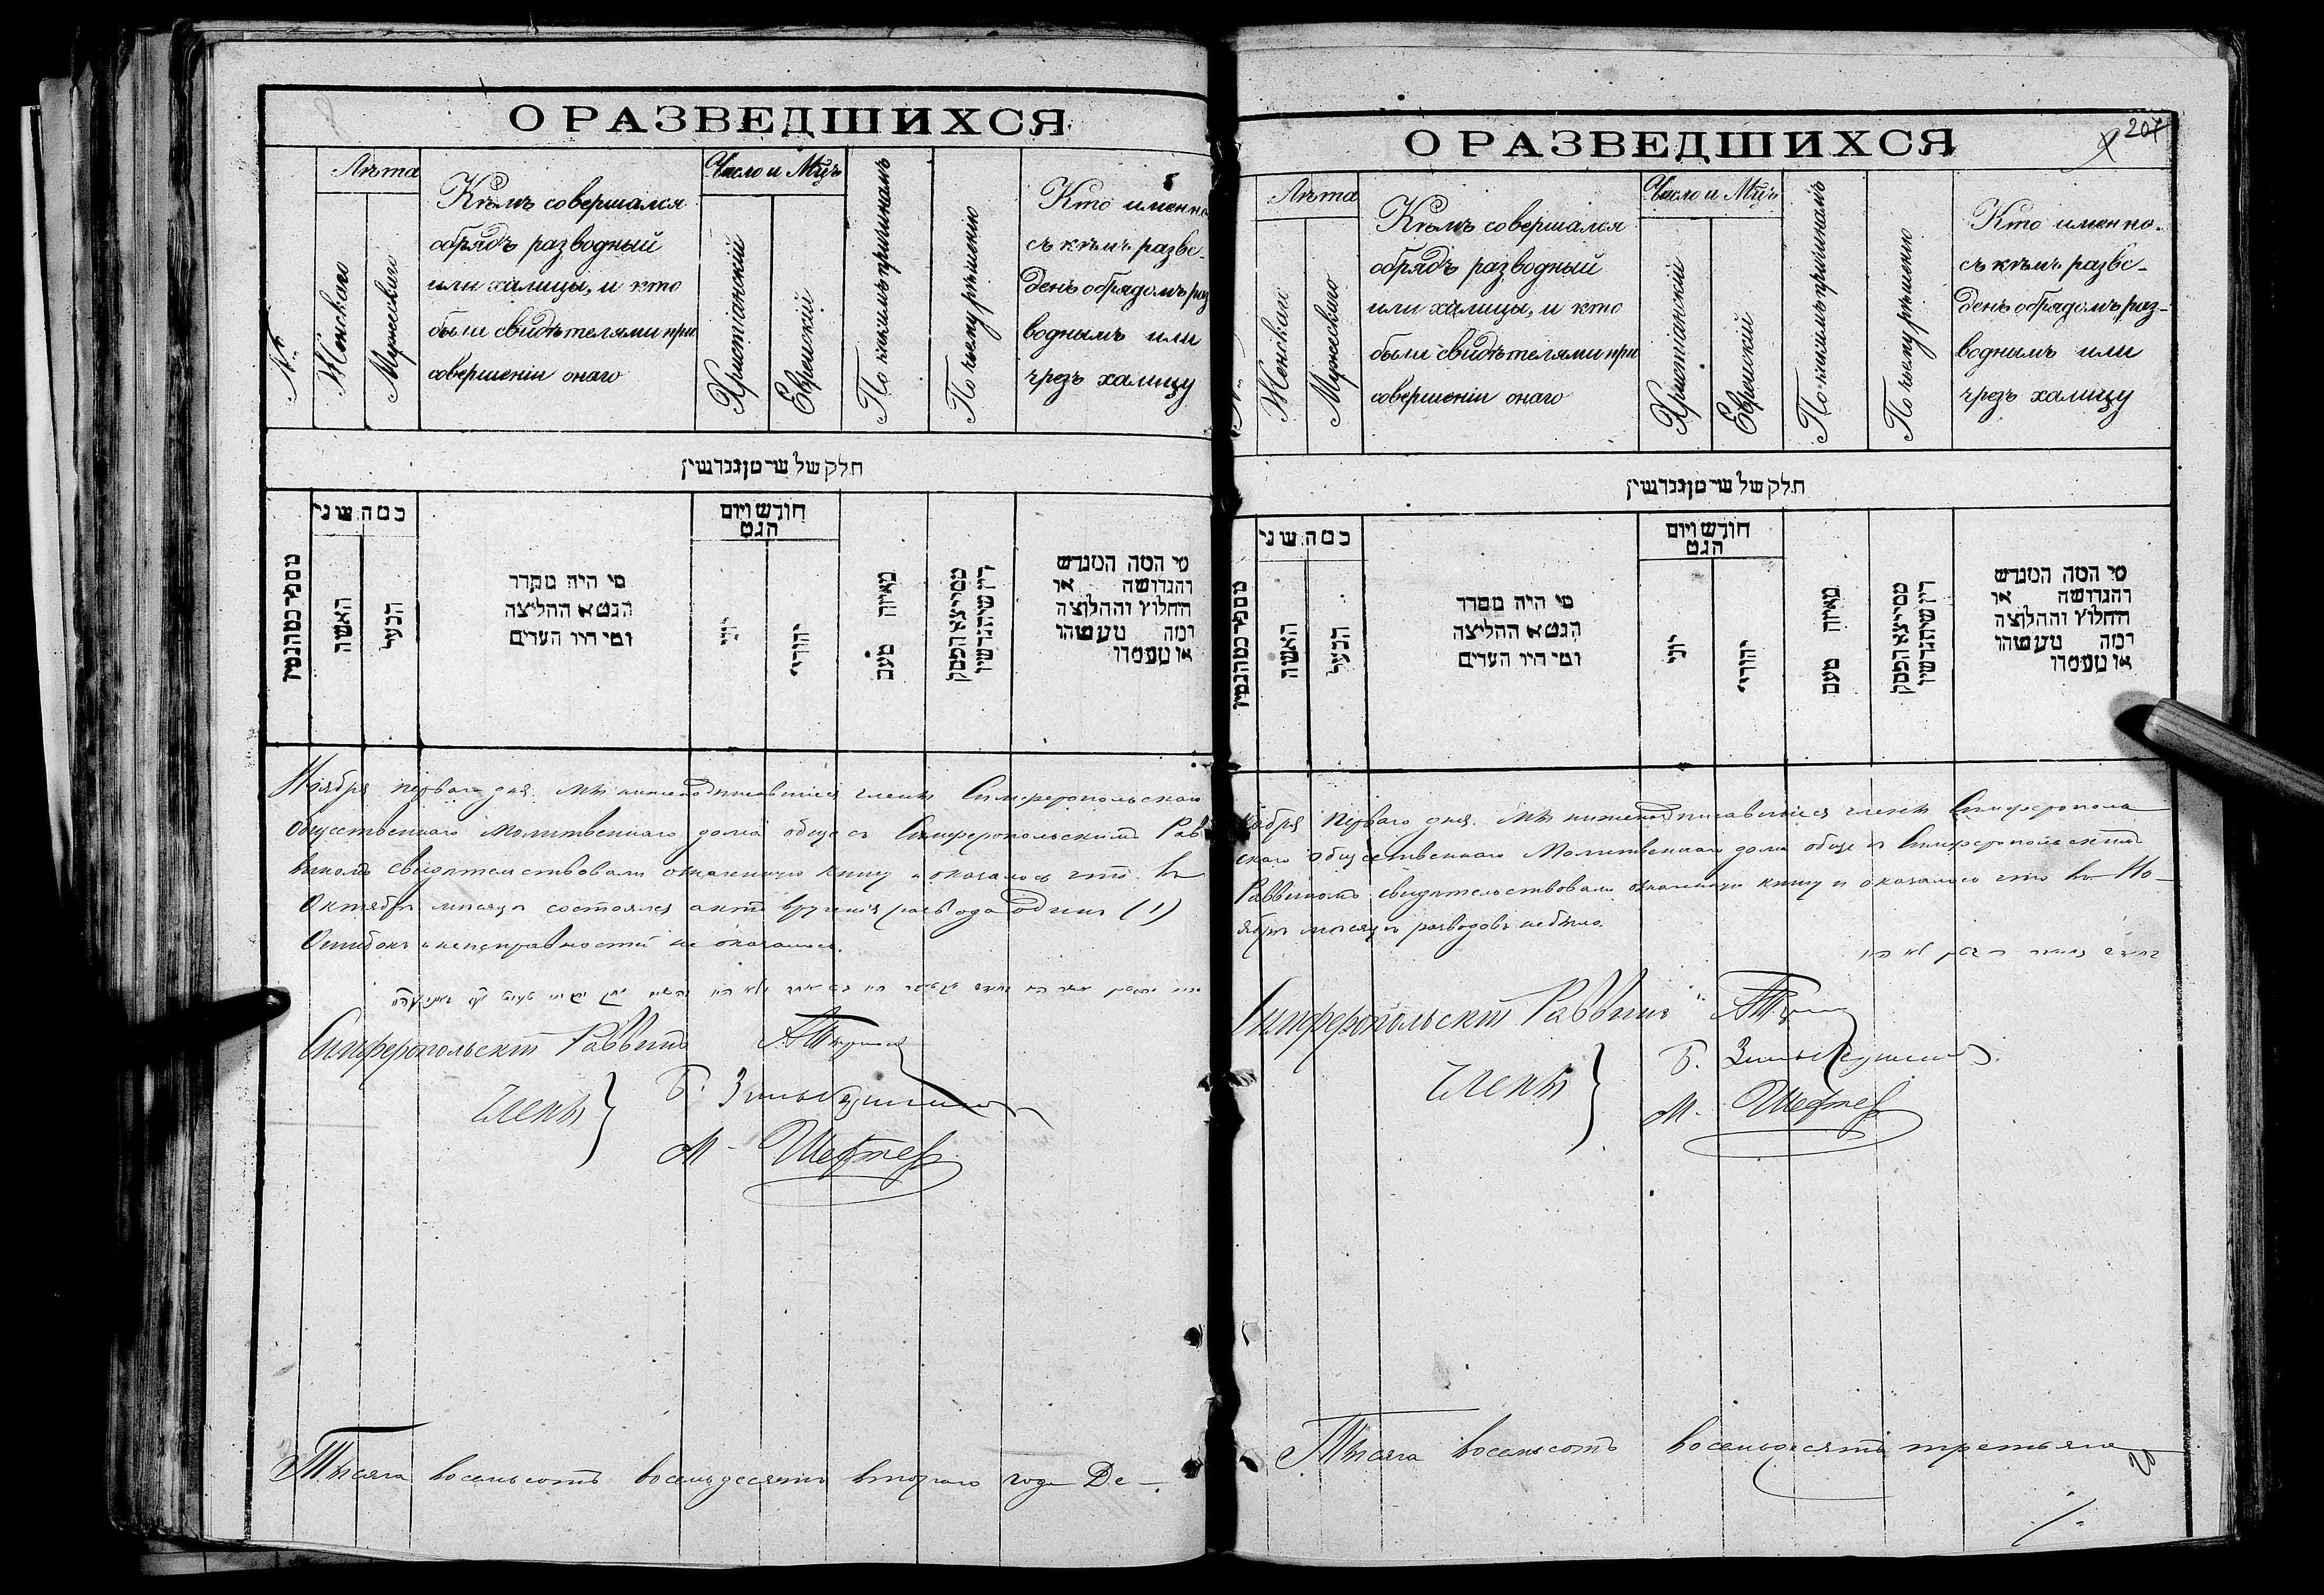 О РАЗВЕДШИХСЯ
№
Лѣта
Женскаго
Мужескаго
Кѣмъ совершался
обрядъ разводный
или халицы, и кто
были свидѣтелями при
совершеніи онаго
Число и Мѣц
Христіанскій
Еврейскій
По какимъ причинамъ
По чьему рѣшенію
Кто именно
съ кѣмъ разве-
денъ обрядомъ раз
воднымъ или
чрезъ халицу
חלק של שטר גירושין
כמה שני
האשה
הבעל
מי היה מסדר
הגט או החליצה
ומי היו העדים
חודש ויום
הגט
יוני
יהודי
מאיזה טעם
מי המה המגרש
והגרושה או
החלוץ והחלוצה
Ноября перваго дня. Мы нижеподписавшіеся члены Симферопольскаго
Общественнаго Молитвеннаго дома обще съ Симферопольскимъ Рав
виномъ свидѣтельствовали означенную книгу и оказалось что въ
Октябрѣ мѣсяцѣ состоялся актъ врученія развода одинъ (1)
Ошибокъ и неисправностей не оказалось.
Симферопольскій Раввинъ
Члены
Б.
М. Шефтер
Тысяча восемьсотъ восемьдесятъ втораго года Де-
О РАЗВЕДШИХСЯ
207
Лѣта
Женскаго
Мужескаго
Кѣмъ совершался
обрядъ разводный
или халицы, и кто
были свидѣтелями при
совершеніи онаго
Число и Мѣц
Христіанскій
Еврейскій
По какимъ причинамъ
По чьему рѣшенію
Кто именно
съ кѣмъ разве-
денъ обрядомъ раз-
воднымъ или
чрезъ халицу
חלק של שטר גירושין
כמה שני
האשה
הבעל
מי היה מסדר
הגט או החליצה
ומי היו העדים
חודש ויום
הגט
יוני
יהודי
מאיזה טעם
מי המה המגרש
והגרושה או
החלוץ והחלוצה
кабря перваго дня. Мы нижеподписавшіеся члены Симферополь
скаго Общественнаго Молитвеннаго дома обще съ Симферопольскимъ
Раввиномъ свидѣтельствовали означенную книгу и оказалось что въ Но-
ябрѣ мѣсяцѣ разводовъ не было.
Симферопольскій Раввинъ
Члены
Б.
М. Шефтер
Тысяча восемьсотъ восемьдесятъ третьяго